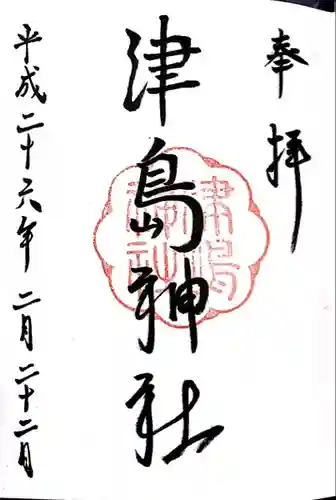 奉拝
津島神社
津嶋神社
平成二十六年二月二十二日